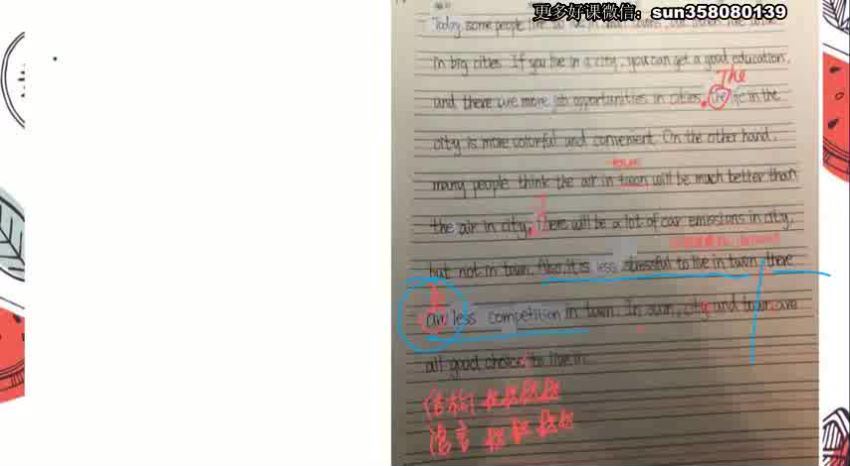 更多好课微信：sun358080139
Today some people like to live in
in big cities. If you live in a city, you can get a good education,
The
and there are more job opportunities in cities. the life in the
city is more colorful and convenient. On the other hand,
many people think the air in twon will be much better than
the air in city. There will be a lot of car emissions in city,
but not in town. Also, it is less stressful to live in twon, there
are less competition in town. In sum, city and town are
all good choice to live in.
结构：
语言